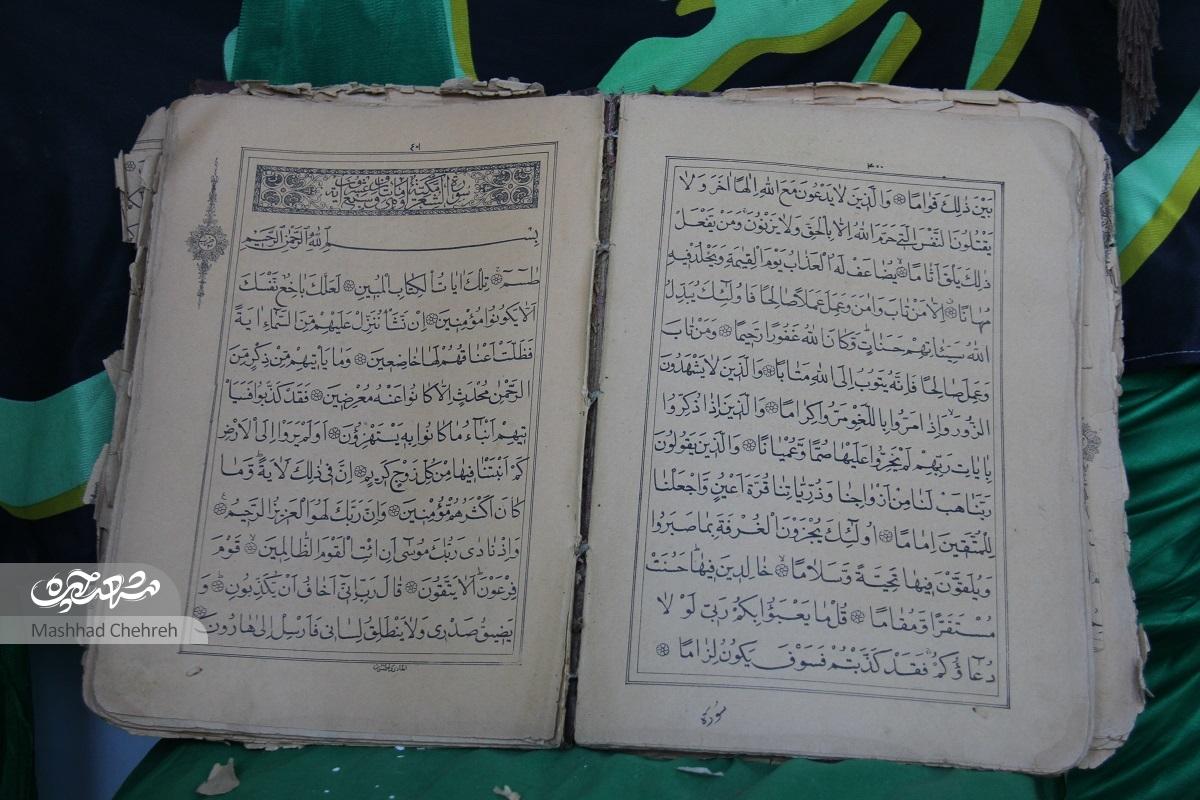 ۴۰۰
بَيْنَ ذٰلِكَ قَوٰامًا وَالَّذينَ لا يَدْعُونَ مَعَ اللّٰهِ اِلٰهًا اٰخَرَ وَلا
يَقْتُلُونَ النَّفْسَ الَّتى حَرَّمَ اللّٰهُ اِلّا بِالْحَقِّ وَلا يَزْنُونَ وَمَنْ يَفْعَلْ
ذٰلِكَ يَلْقَ اَثٰامًا يُضٰاعَفْ لَهُ الْعَذٰابُ يَوْمَ الْقِيٰمَةِ وَيَخْلُدْ فيهِ
مُهٰانًا اِلّا مَنْ تٰابَ وَاٰمَنَ وَعَمِلَ عَمَلًا صٰالِحًا فَاُولٰئِكَ يُبَدِّلُ
اللّٰهُ سَيِّئٰاتِهِمْ حَسَنٰاتٍ وَكٰانَ اللّٰهُ غَفُورًا رَحيمًا وَمَنْ تٰابَ
وَعَمِلَ صٰالِحًا فَاِنَّهُ يَتُوبُ اِلَى اللّٰهِ مَتٰابًا وَالَّذينَ لا يَشْهَدُونَ
الزُّورَ وَاِذٰا مَرُّوا بِاللَّغْوِ مَرُّوا كِرٰامًا وَالَّذينَ اِذٰا ذُكِّرُوا
بِاٰيٰاتِ رَبِّهِمْ لَمْ يَخِرُّوا عَلَيْهٰا صُمًّا وَعُمْيٰانًا وَالَّذينَ يَقُولُونَ
رَبَّنٰا هَبْ لَنٰا مِنْ اَزْوٰاجِنٰا وَذُرِّيّٰاتِنٰا قُرَّةَ اَعْيُنٍ وَاجْعَلْنٰا
لِلْمُتَّقينَ اِمٰامًا اُولٰئِكَ يُجْزَوْنَ الْغُرْفَةَ بِمٰا صَبَرُوا
وَيُلَقَّوْنَ فيهٰا تَحِيَّةً وَسَلٰامًا خٰالِدينَ فيهٰا حَسُنَتْ
مُسْتَقَرًّا وَمُقٰامًا قُلْ مٰا يَعْبَؤُا بِكُمْ رَبّى لَوْ لا
دُعٰاؤُكُمْ فَقَدْ كَذَّبْتُمْ فَسَوْفَ يَكُونُ لِزٰامًا
سورة
۴۰۱
بِسْمِ اللّٰهِ الرَّحْمٰنِ الرَّحيمِ
طٰسٓمٓ تِلْكَ اٰيٰاتُ الْكِتٰابِ الْمُبينِ لَعَلَّكَ بٰاخِعٌ نَفْسَكَ
اَلّا يَكُونُوا مُؤْمِنينَ اِنْ نَشَأْ نُنَزِّلْ عَلَيْهِمْ مِنَ السَّمٰاءِ اٰيَةً
فَظَلَّتْ اَعْنٰاقُهُمْ لَهٰا خٰاضِعينَ وَمٰا يَأْتيهِمْ مِنْ ذِكْرٍ مِنَ
الرَّحْمٰنِ مُحْدَثٍ اِلّا كٰانُوا عَنْهُ مُعْرِضينَ فَقَدْ كَذَّبُوا فَسَيَأْ
تيهِمْ اَنْبٰاءُ مٰا كٰانُوا بِهِ يَسْتَهْزِؤُنَ اَوَلَمْ يَرَوْا اِلَى الْاَرْضِ
كَمْ اَنْبَتْنٰا فيهٰا مِنْ كُلِّ زَوْجٍ كَريمٍ اِنَّ فى ذٰلِكَ لَاٰيَةً وَمٰا
كٰانَ اَكْثَرُهُمْ مُؤْمِنينَ وَاِنَّ رَبَّكَ لَهُوَ الْعَزيزُ الرَّحيمُ
وَاِذْ نٰادٰى رَبُّكَ مُوسٰى اَنِ ائْتِ الْقَوْمَ الظّٰالِمينَ قَوْمَ
فِرْعَوْنَ اَلا يَتَّقُونَ قٰالَ رَبِّ اِنّى اَخٰافُ اَنْ يُكَذِّبُونِ وَ
يَضيقُ صَدْرى وَلا يَنْطَلِقُ لِسٰانى فَاَرْسِلْ اِلٰى هٰارُونَ
شهرآرا
Mashhad Chehreh